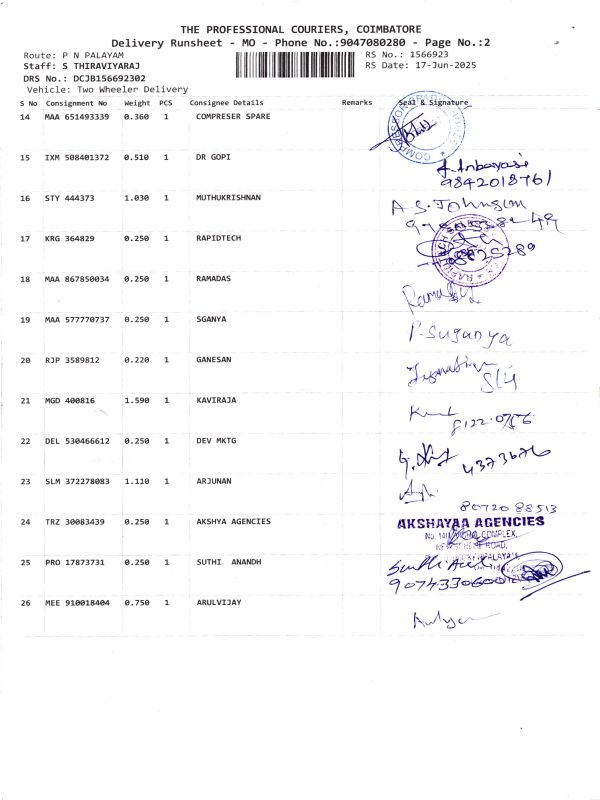 THE PROFESSIONAL COURIERS, COIMBATORE
Delivery Runsheet - MO - Phone No.:9047080280 - Page No.:2
Route: P N PALAYAM
RS No.: 1566923
Staff: S THIRAVIYARAJ
RS Date: 17-Jun-2025
DRS No.: DCJB156692302
Vehicle: Two Wheeler Delivery
S No Consignment No Weight PCS Consignee Details Remarks Seal & Signature
14 MAA 651493339 0.360 1 COMPRESER SPARE
15 IXM 508401372 0.510 1 DR GOPI
9842018761
16 STY 444373 1.030 1 MUTHUKRISHNAN A.S. Johnson
17 KRG 364829 0.250 1 RAPIDTECH
18 MAA 867850034 0.250 1 RAMADAS
19 MAA 577770737 0.250 1 SGANYA P. Suganya
20 RJP 3589812 0.220 1 GANESAN
21 MGD 400816 1.590 1 KAVIRAJA
22 DEL 530466612 0.250 1 DEV MKTG
23 SLM 372278083 1.110 1 ARJUNAN
8072088513
24 TRZ 30083439 0.250 1 AKSHYA AGENCIES AKSHAYAA AGENCIES
COMPLEX,
ROAD,
25 PRO 17873731 0.250 1 SUTHI ANANDH
26 MEE 910018404 0.750 1 ARULVIJAY